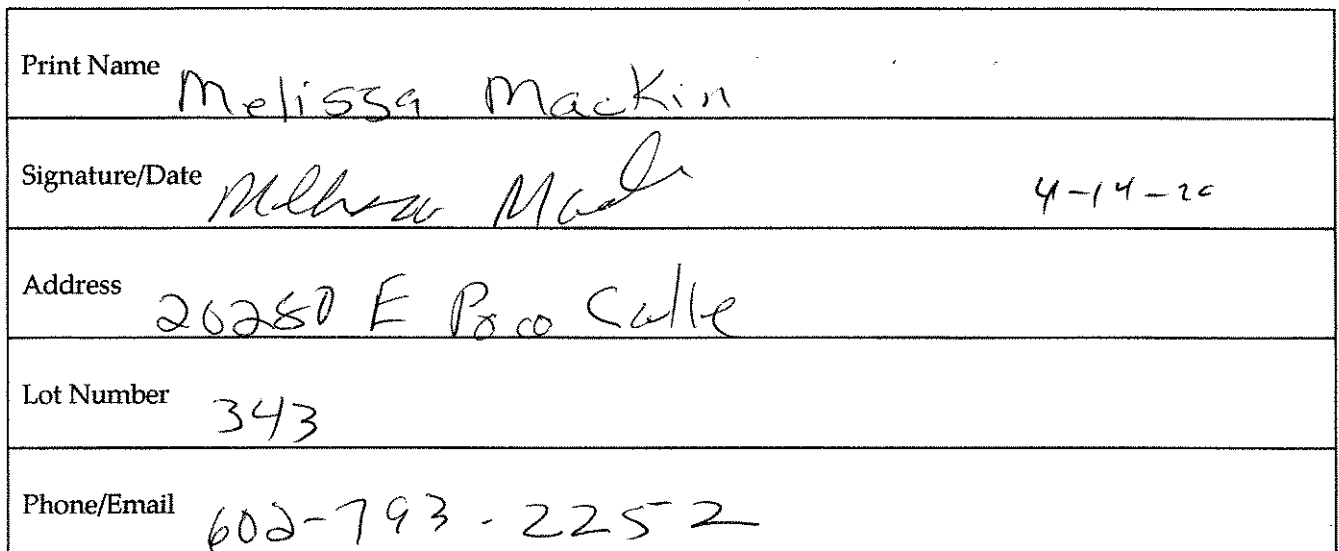 Print Name Melissa Mackin
Signature/Date Melissa Mack 4-14-20
Address 20280 E Poco Calle
Lot Number 343
Phone/Email 602-793-2252